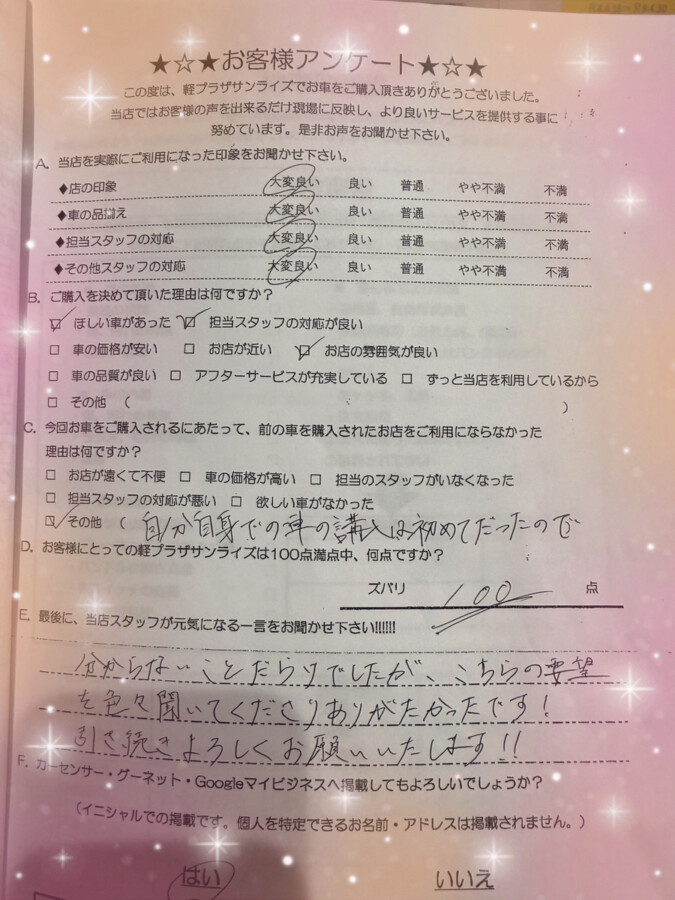 ★☆★お客様アンケート★☆★
この度は、軽プラザサンライズでお車をご購入頂きありがとうございました。
当店ではお客様の声を出来るだけ現場に反映し、より良いサービスを提供する事に
努めています。是非お声をお聞かせ下さい。
A. 当店を実際にご利用になった印象をお聞かせ下さい。
◆店の印象 大変良い 良い 普通 やや不満 不満
◆車の品揃え 大変良い 良い 普通 やや不満 不満
◆担当スタッフの対応 大変良い 良い 普通 やや不満 不満
◆その他スタッフの対応 大変良い 良い 普通 やや不満 不満
B. ご購入を決めて頂いた理由は何ですか？
☑ ほしい車があった ☑ 担当スタッフの対応が良い
□ 車の価格が安い □ お店が近い ☑ お店の雰囲気が良い
□ 車の品質が良い □ アフターサービスが充実している □ ずっと当店を利用しているから
□ その他 （ ）
C. 今回お車をご購入されるにあたって、前の車を購入されたお店をご利用にならなかった
理由は何ですか？
□ お店が遠くて不便 □ 車の価格が高い □ 担当のスタッフがいなくなった
□ 担当スタッフの対応が悪い □ 欲しい車がなかった
☑ その他 （ 自分自身での車の購入は初めてだったので
D. お客様にとっての軽プラザサンライズは100点満点中、何点ですか？
ズバリ 100 点
E. 最後に、当店スタッフが元気になる一言をお聞かせ下さい!!!!!!
分からないことだらけでしたが、こちらの要望
を色々聞いてくださりありがたかったです！
引き続きよろしくお願いいたします!!
F. カーセンサー・グーネット・Googleマイビジネスへ掲載してもよろしいでしょうか？
（イニシャルでの掲載です。個人を特定できるお名前・アドレスは掲載されません。）
はい いいえ